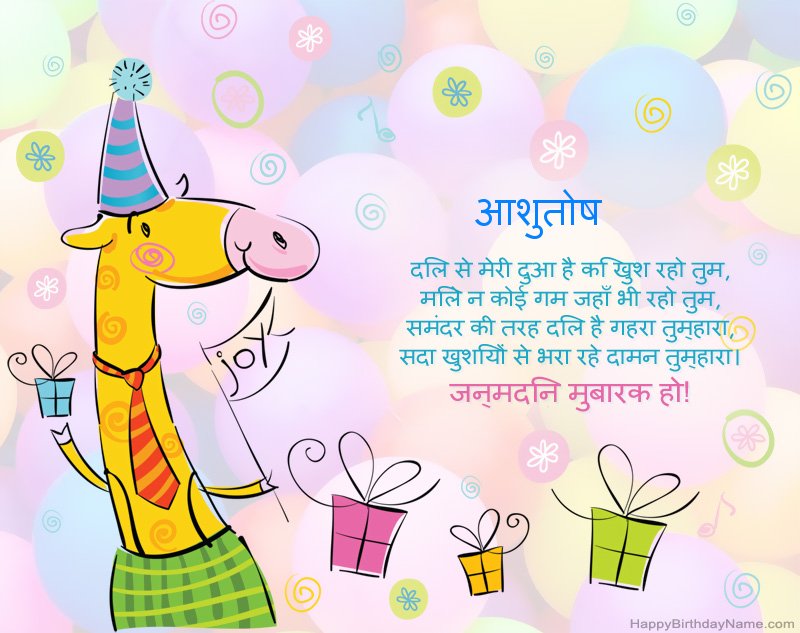 आशुतोष
दलि से मेरी दुआ है कि खुश रहो तुम,
मलिे न कोई गम जहाँ भी रहो तुम,
समंदर की तरह दलि है गहरा तुम्‌हारा,
सदा खुशयिों से भरा रहे दामन तुम्‌हारा।
जन्‌मदनि मुबारक हो!
joy
HappyBirthdayName.com